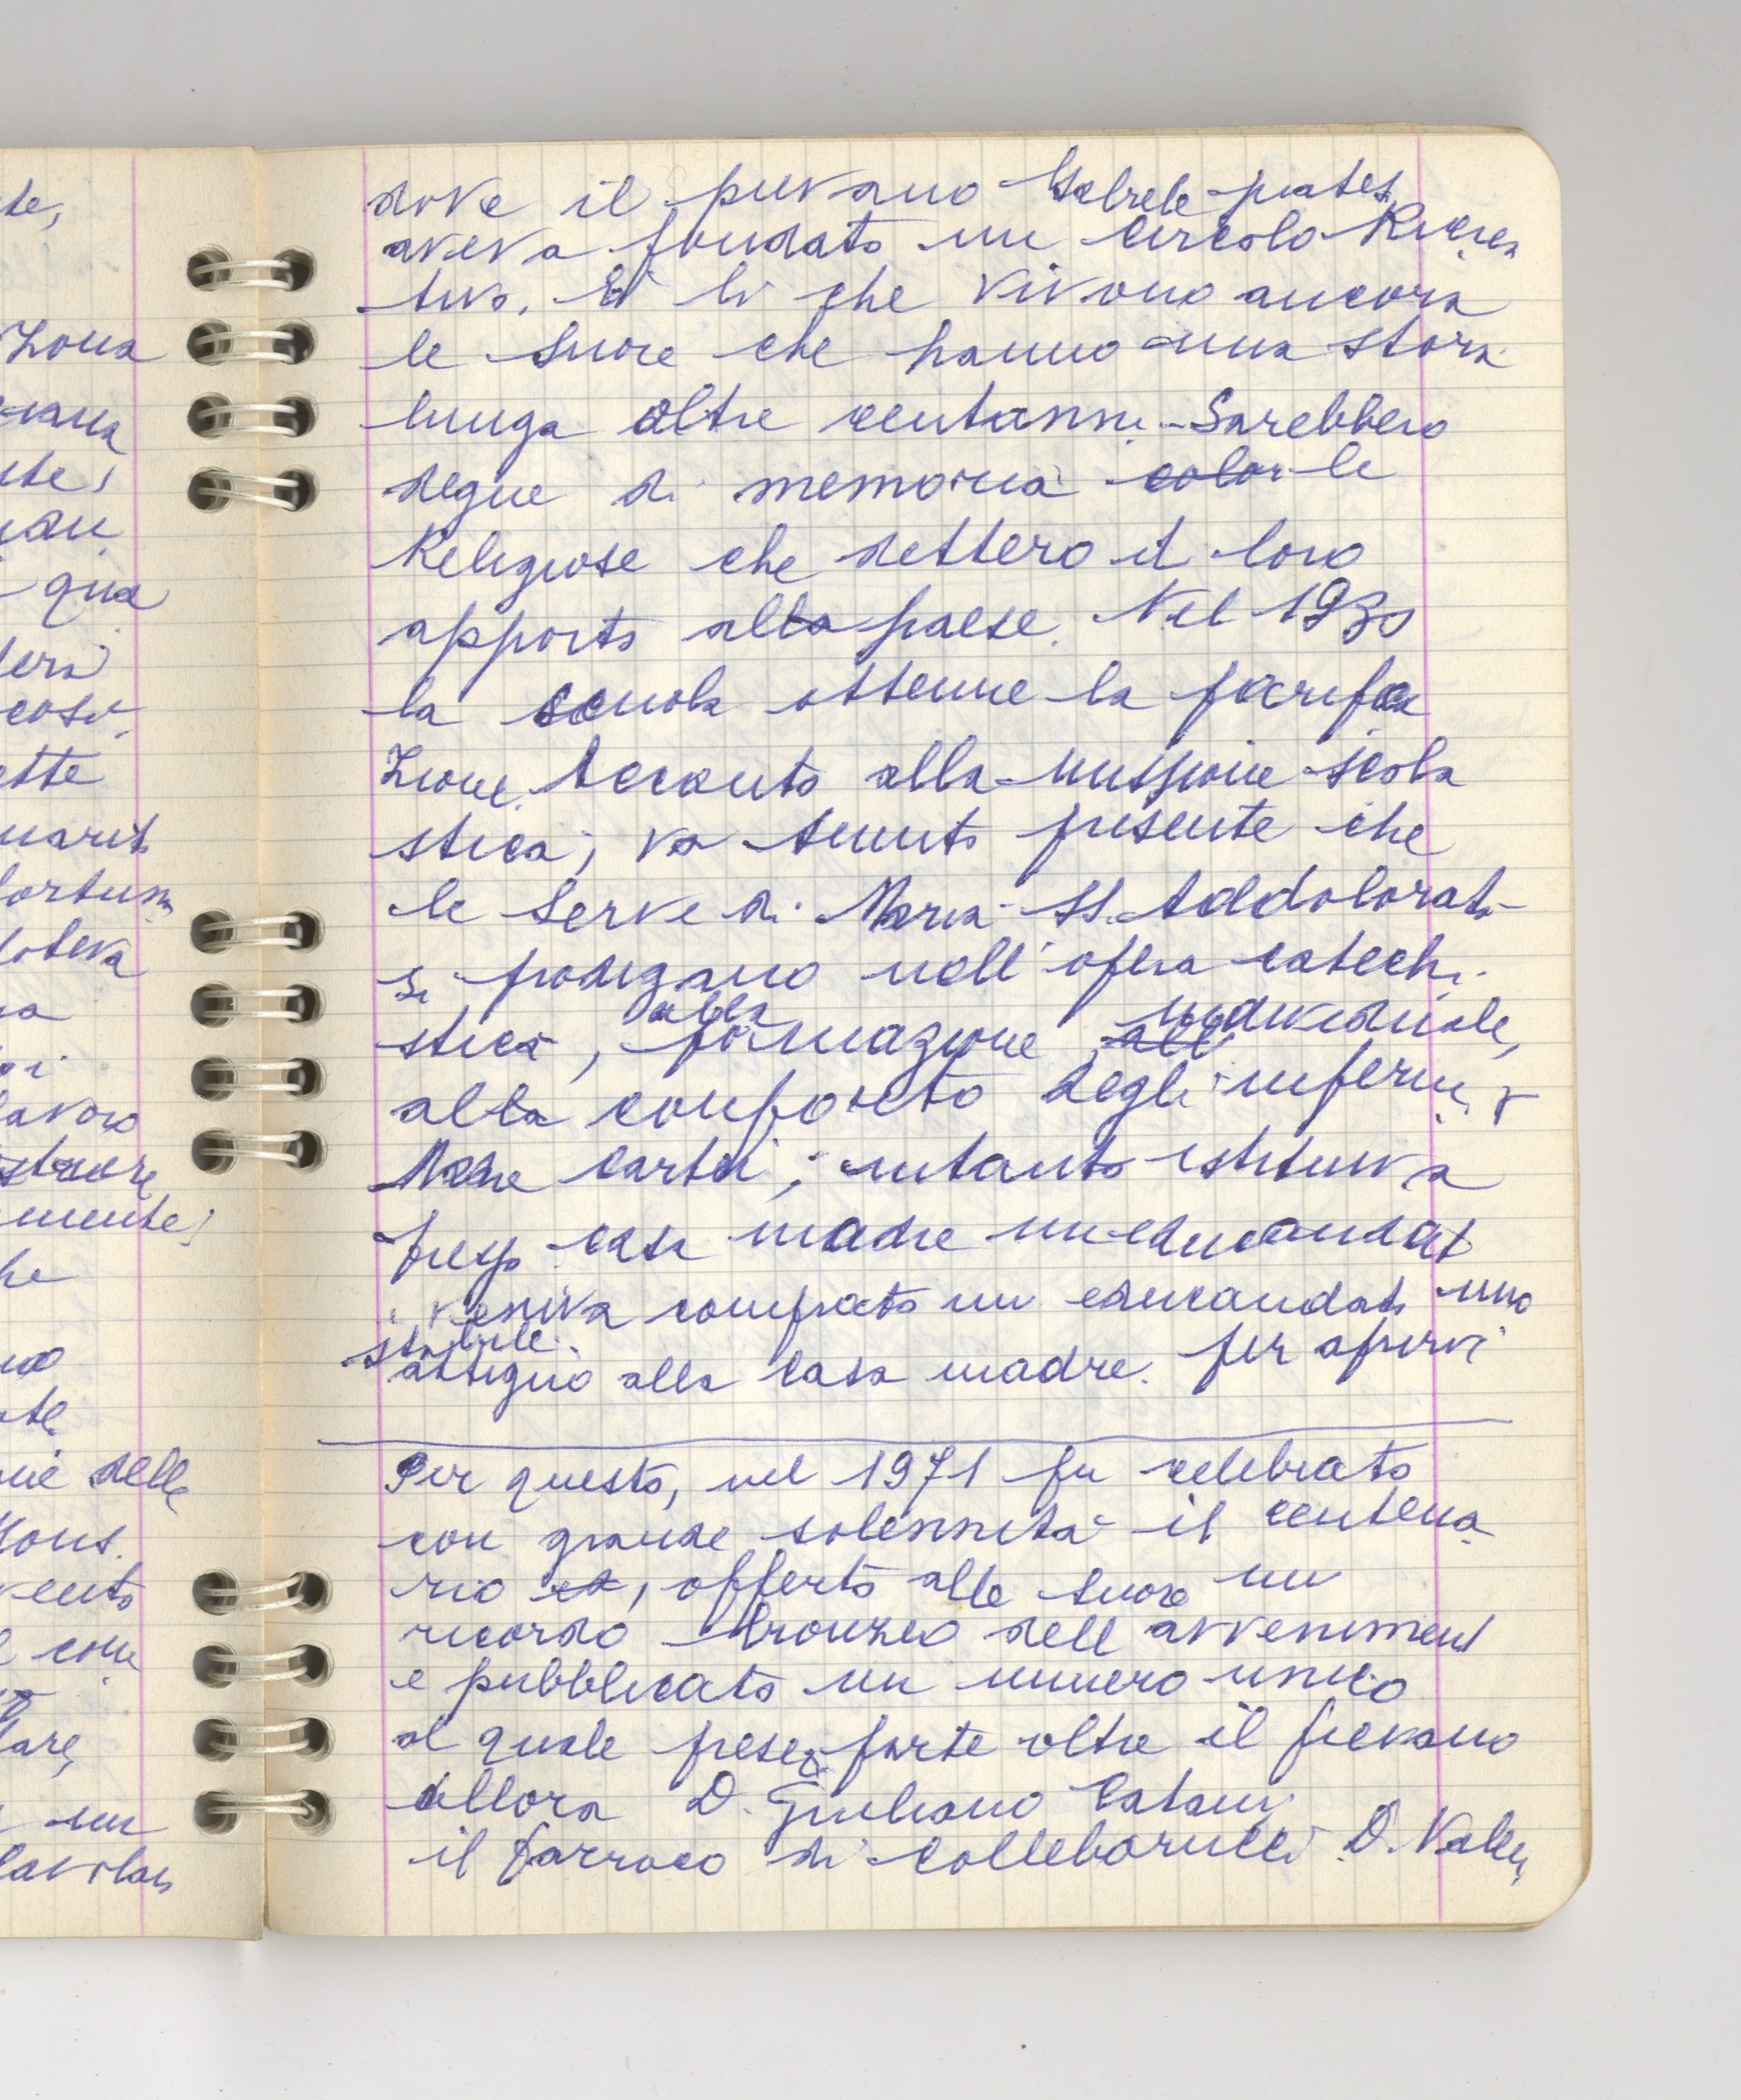 te,
Zona
qua
cosi
ette
lavoro
mente;
delle
Mons.
un
dove il pievano prates
aveva fondato un Circolo Ricrea
tivo. E' lì che vivono ancora
le Suore che hanno una storia
lunga oltre centanni. Sarebbero
degne di memoria color le
Religiose che dettero il loro
apporto alla paese. Nel 1930
la scuola ottenne la parifica
zione. Accanto alla missione scola
stica, va tenuto presente che
le Serve di Maria SS. Addolorata
si prodigano nell'opera catechi
stica, alla formazione all individuale,
alla conforto degli infermi,
carità; intanto istituiva
presso casa madre un educandato
veniva comprato un educandato uno
stabile
attiguo alla Casa madre. per aprirvi
Per questo, nel 1971 fu celebrato
con grande solennità il centena
rio ed, offerto alle Suore un
ricordo bronzeo dell avveniment
e pubblicato un numero unico
al quale prese parte oltre il pievano
allora D. Giuliano Catani
il parroco di Collebarucci D.